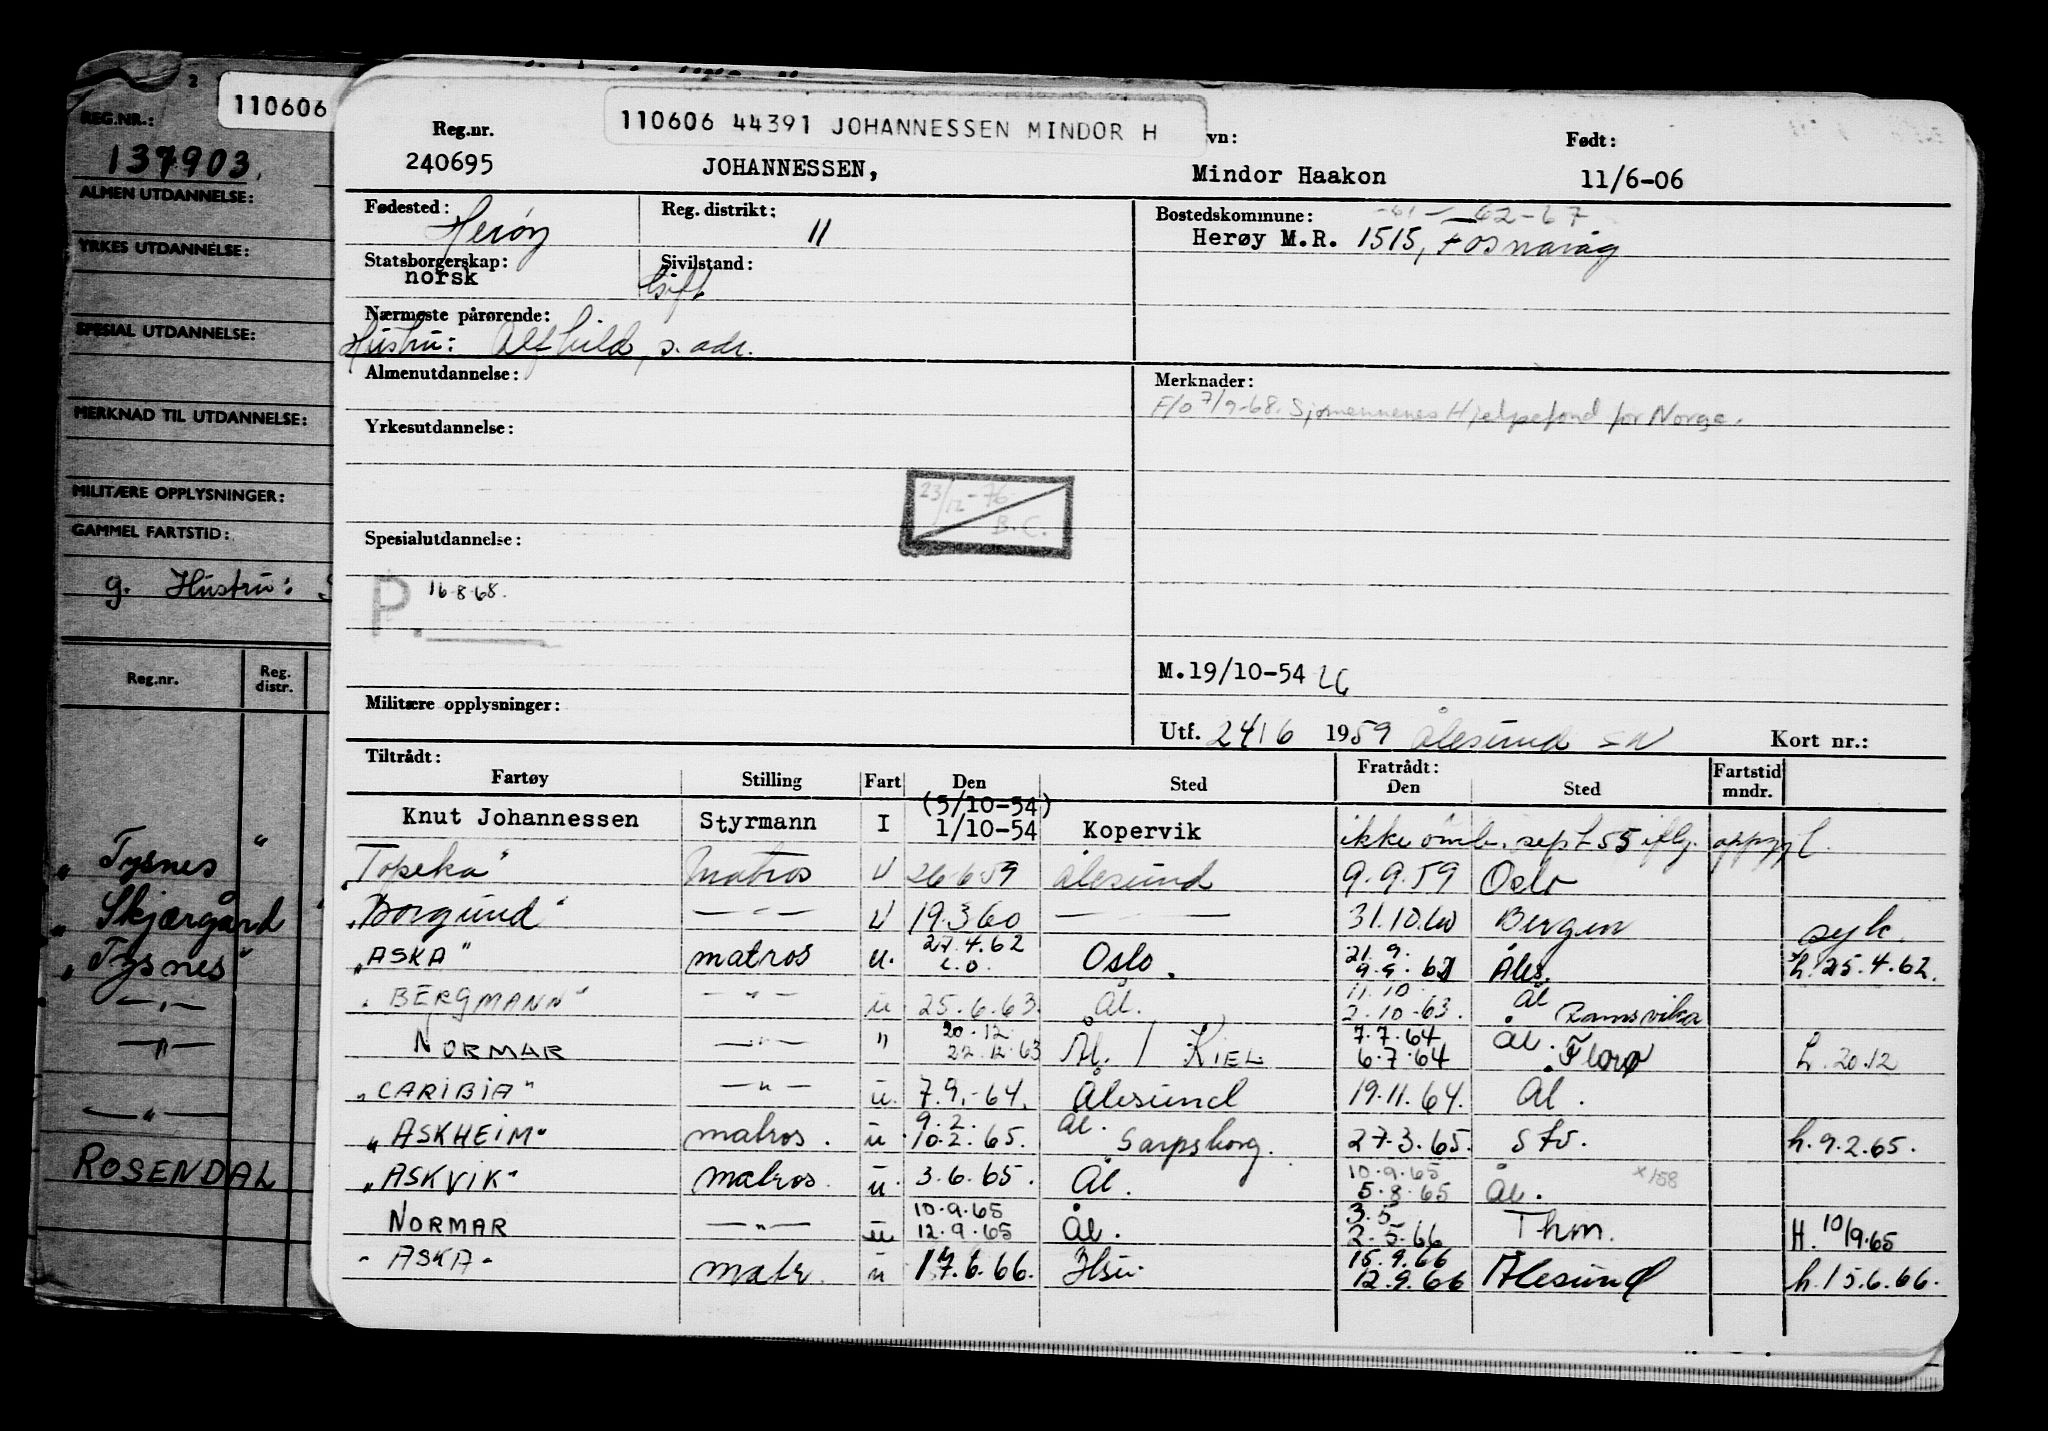 2
REG.NR.:
110606
137903.
ALMEN UTDANNELSE:
YRKES UTDANNELSE:
SPESIAL UTDANNELSE:
MERKNAD TIL UTDANNELSE:
MILITÆRE OPPLYSNINGER:
GAMMEL FARTSTID:
g. Hustru:
Reg.nr. Reg. distr.
"
" Tysnes
" Skjærgård "
" Tysnes "
— " —
— " —
— " —
ROSENDAL
110606 44391 JOHANNESSEN MINDOR H
Reg.nr. vn: Født:
240695 JOHANNESSEN, Mindor Haakon 11/6-06
Fødested: Herøy Reg. distrikt: 11 Bostedskommune: -61- 62-67
Herøy M.R. 1515, Fosnavåg
Statsborgerskap: norsk Sivilstand: Gift
Nærmeste pårørende:
Hustru: Alfhild, s. adr.
Almenutdannelse: Merknader:
F/o 7/9-68. Sjømennenes Hjelpefond for Norge.
Yrkesutdannelse:
23/12-76
B.C.
Spesialutdannelse:
P. 16.8.68.
M.19/10-54 LG
Militære opplysninger:
Utf. 24/6 1959 Ålesund Kort nr.:
Tiltrådt: Fratrådt: Fartstid mndr.
Fartøy Stilling Fart Den Sted Den Sted
(5/10-54)
Knut Johannessen Styrmann I 1/10-54 Kopervik ikke omb. sept 55 iflg. oppg
"Topeka" Matros U 26 6 59 Ålesund 9.9.59 Oslo
"Borgund" — " — U 19.3 60 — 31.10.60 Bergen syk.
27.4.62 21.9.
"ASKA" matros u. Oslo. 9.9.62 Åles. h. 25.4.62.
11.10 Ål
"BERGMANN" — " — u 25.6.63. Ål. 2.10-63. Ramsvika
20.12 7.7.64 Ål.
NORMAR — " — " 22.12.63 Ål. / KIEL 6.7.64 Florø h. 20.12
"CARIBIA" — " — u. 7.9.-64. Ålesund 19.11.64. Ål.
9.2. Ål.
"ASKHEIM" matros. u 10.2.65. Sarpsborg. 27.3.65. Stv. h.9.2.65.
10.9.65
"ASKVIK" matros. u 3.6.65. Ål. 5.8.65 Ål. x158
10.9.65 3.5
NORMAR — " — u 12.9.65 Ål. 2.5.66 Thm. H. 10/9.65
15.9.66
- ASKA - matr. u 17.6.66. 12.9.66 Ålesund h.15.6.66.